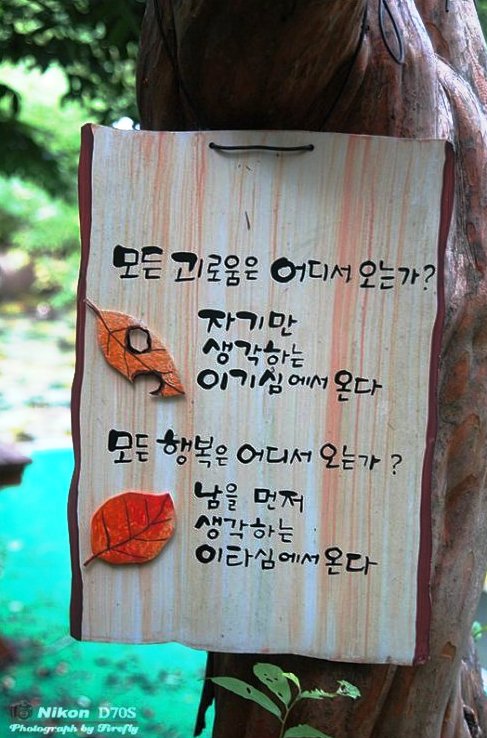 모든 괴로움은 어디서 오는가?
자기만
생각하는
이기심에서 온다
모든 행복은 어디서 오는가?
남을 먼저
생각하는
이타심에서 온다
Nikon D70S
Photograph by Firefly